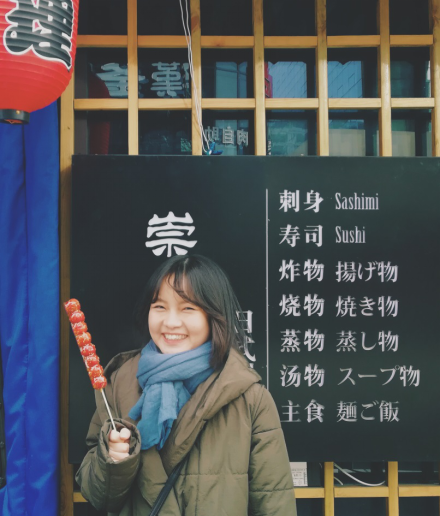 崇
刺身 Sashimi
寿司 Sushi
炸物 揚げ物
烧物 焼き物
蒸物 蒸し物
汤物 スープ物
主食 麺ご飯